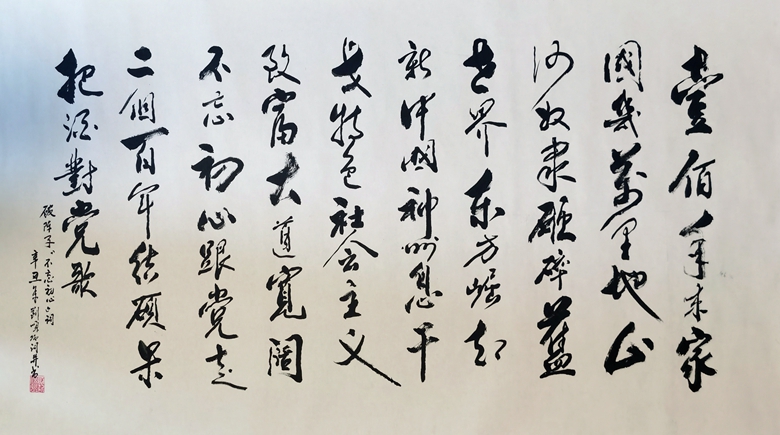 壹佰年来家
國幾萬里地山
河奴隶砸碎舊
世界东方崛起
新中國神州息干
戈特色社会主义
致富大道寬阔
不忘初心跟党走
二個百年结硕果
把酒對党歌
破阵子"不忘初心"词
辛丑年刘词并书